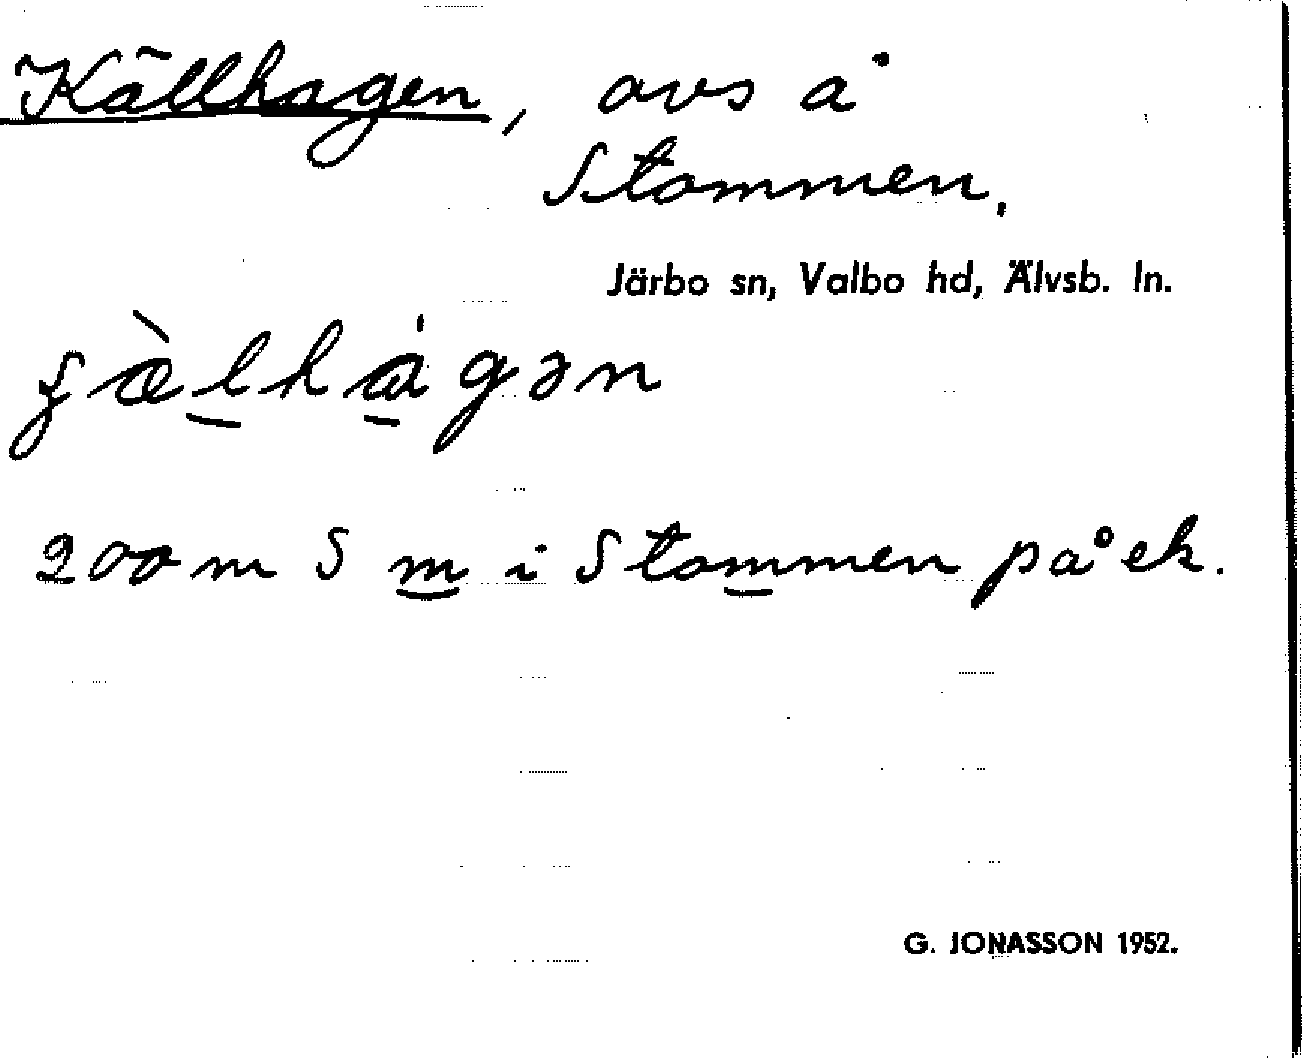 Källhagen, avs å
Stommen.
Järbo sn, Valbo hd, Älvsb. ln.
ʃæ̀lhágən
200 m S m i Stommen på ek.
G. JONASSON 1952.